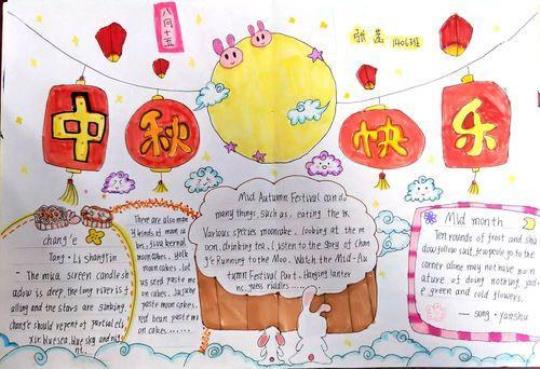 八月十五
1406班
中秋快乐
chang'e
Tang - Li shangyin
- The mica screen candle sh
adow is deep, the long river is f
alling and the stars are sinking.
chang'e should repent of partial eli
xir. blue sea, blue sky and nig
ht.
There are also man
y kinds of moon ca
kes.
moon cakes. yolk
moon cakes. lot
us seed paste mo
on cakes.
paste moon cakes.
red bean paste mo
on cakes......
Mid Autumn Festival can do
many things, such as, eating the
Various species mooncake, looking at the m
oon, drinking tea, listen to the story of Chan
g'e Running to the Moo. Watch the Mid-Au
tumn Festival Part. Hanging lanter
ns, guess riddles......
Mid month
Ten rounds of frost and sha
dow
corner alone may not have a n
ature of doing nothing, jad
e green and cold flowers.
— song - yanshu